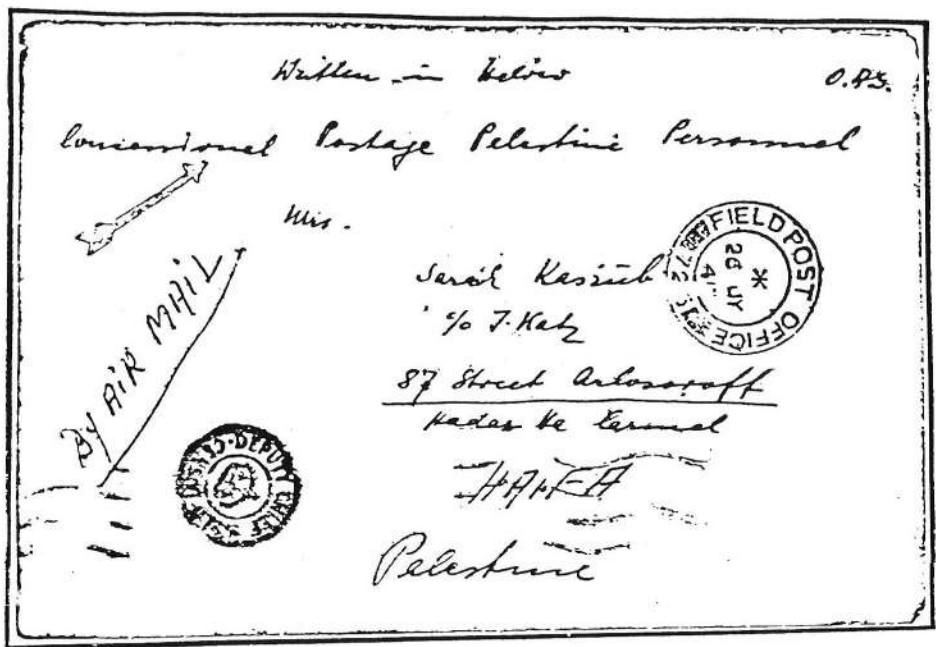 Written in Hebrew
O.A.S.
Concessional Postage Palestine Personnel
Mrs.
Sarah Kaszub
c/o J. Katz
87 Street Arlosoroff
Hadar Ha Carmel
HAIFA
Palestine
BY AIR MAIL
FIELD POST OFFICE
DEPUTY CHIEF